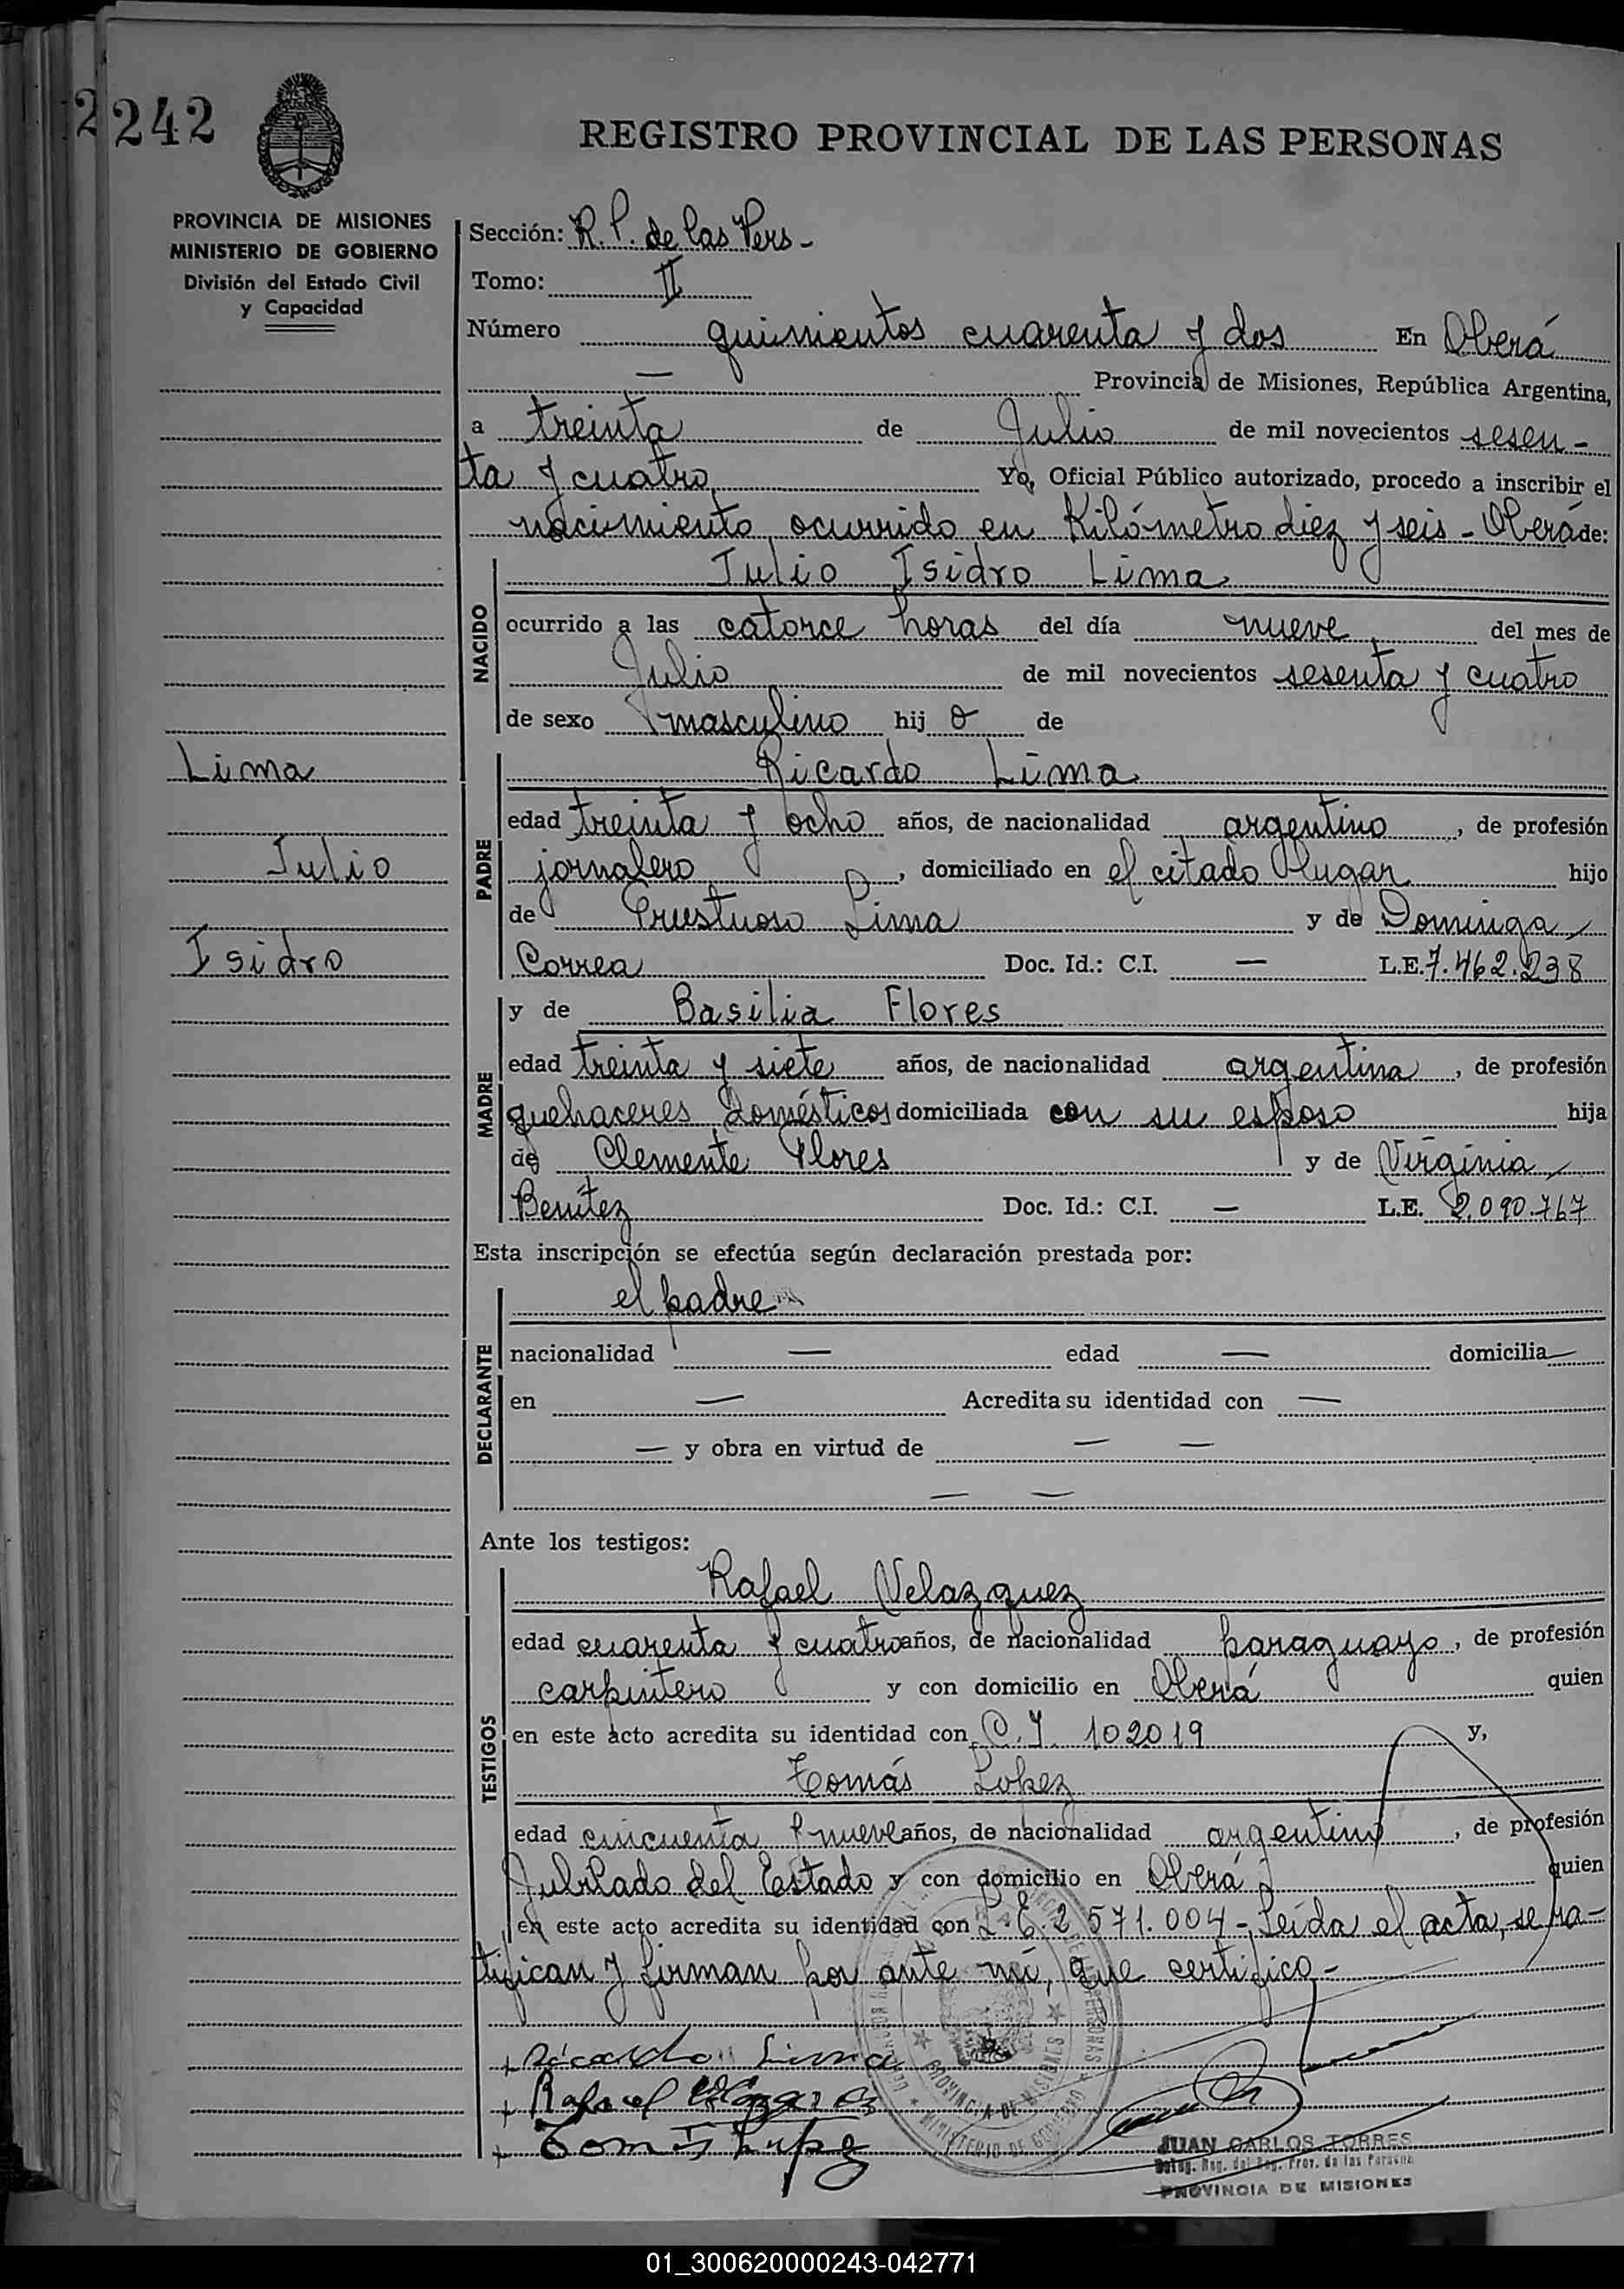 2242
REGISTRO PROVINCIAL DE LAS PERSONAS
PROVINCIA DE MISIONES
MINISTERIO DE GOBIERNO
División del Estado Civil
y Capacidad
Sección: R. P. de las Pers -
Tomo: II
Número quinientos cuarenta y dos En Oberá
— Provincia de Misiones, República Argentina,
a treinta de Julio de mil novecientos sesen-
ta y cuatro Yo, Oficial Público autorizado, procedo a inscribir el
nacimiento ocurrido en Kilómetro diez y seis - Oberá de:
NACIDO
Julio Isidro Lima
ocurrido a las catorce horas del día nueve del mes de
Julio de mil novecientos sesenta y cuatro
de sexo masculino hijo de
Lima
Julio
Isidro
PADRE
Ricardo Lima
edad treinta y ocho años, de nacionalidad argentino, de profesión
jornalero, domiciliado en el citado lugar hijo
de Lima y de Dominga
Correa Doc. Id.: C.I. — L.E. 7.462.238
MADRE
y de Basilia Flores
edad treinta y siete años, de nacionalidad argentina, de profesión
quehaceres domésticos domiciliada con su esposo hija
de Clemente Flores y de Virginia
Benítez Doc. Id.: C.I. — L.E. 2.090.767
Esta inscripción se efectúa según declaración prestada por:
DECLARANTE
el padre
nacionalidad — edad — domicilia —
en — Acredita su identidad con —
— y obra en virtud de — —
— —
Ante los testigos:
TESTIGOS
Rafael Velazquez
edad cuarenta y cuatro años, de nacionalidad paraguayo, de profesión
carpintero y con domicilio en Oberá quien
en este acto acredita su identidad con C.I. 102019 y,
Tomás Lopez
edad cincuenta y nueve años, de nacionalidad argentino, de profesión
Jubilado del Estado y con domicilio en Oberá quien
en este acto acredita su identidad con L.E. 2.571.004 - Leída el acta, se ra-
tifican y firman por ante mí, que certifico -
+ Ricardo Lima
+ Rafael Velazquez
+ Tomas Lopez
PROVINCIA DE MISIONES
MINISTERIO DE GOBIERNO
JUAN CARLOS TORRES
Deleg. Reg. del Reg. Prov. de las Personas
PROVINCIA DE MISIONES
01_300620000243-042771